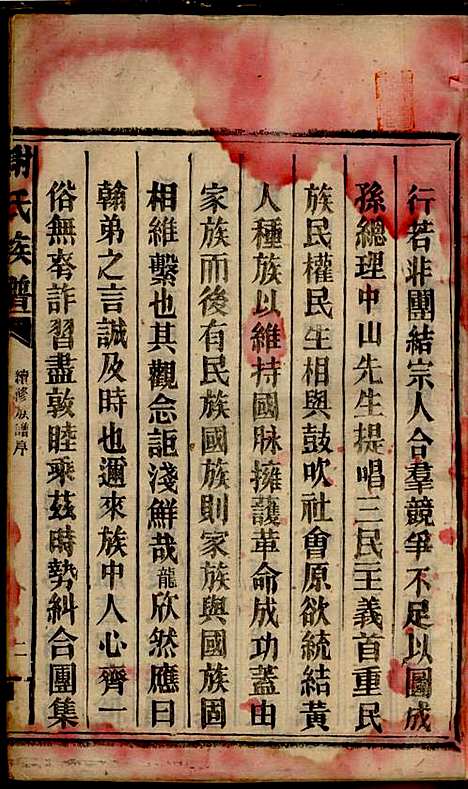 行若非團結宗人合羣競爭不足以圖成
孫總理中山先生提唱三民主義首重民
族民權民生相與鼓吹社會原欲統結黃
人種族以維持國脉擁護革命成功蓋由
家族而後有民族國族則家族與國族固
相維繫也其觀念詎淺鮮哉龍欣然應曰
翰弟之言誠及時也邇來族中人心齊一
俗無夸詐習盡敦睦乘茲時勢糾合團集
謝氏族譜
續修族譜序